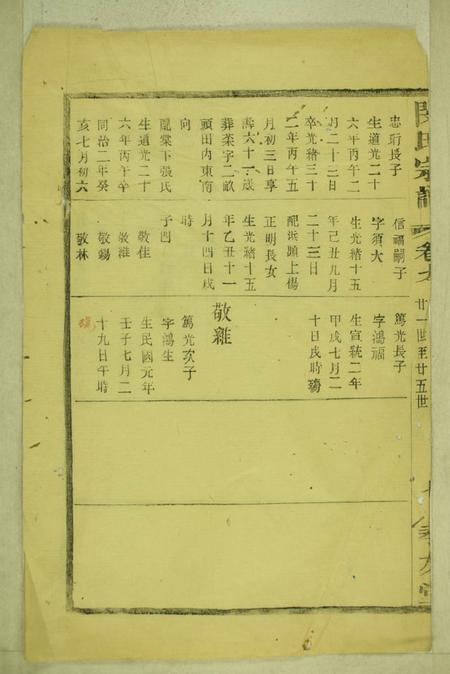 氏宗譜
卷九
廿一世至廿五世
忠珩長子
生道光二十
六年丙午二
月二十二日
卒光緒三十
二年丙午五
月初三日享
壽六十一歲
葬菜字二畝
頭田内東南
向
配棠下張氏
生道光二十
六年丙午卒
同治二年癸
亥七月初六
信福嗣子
字須大
生光緒十五
年己丑九月
二十三日
配浜頭上楊
正明長女
生光緒十五
年乙丑十一
月十四日戌
時
子四
敬佳
敬維
敬錫
敬林
篤光長子
字鴻福
生宣統二年
甲戌七月二
十日戌時殤
敬雜
篤光次子
字鴻生
生民國元年
壬子七月二
十九日午時
殤